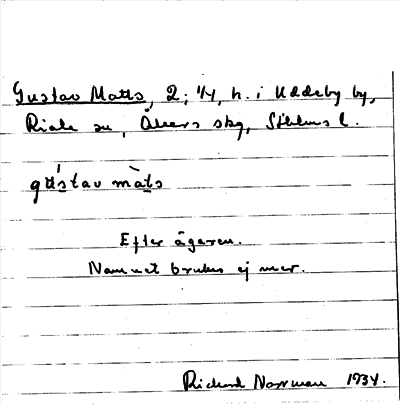 Gustav Matts, 2; 1/4, h. i Uddeby by,
Riala sn, Åkers skg, Sthlms l.
gústav màts
Efter ägaren.
Namnet brukas ej mer.
Richard Norrman 1934.